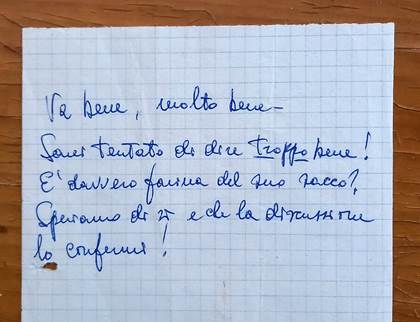 Va bene, molto bene –
Sarei tentato di dire troppo bene!
E' davvero farina del suo sacco?
Speriamo di sì e che la discussione
lo confermi!